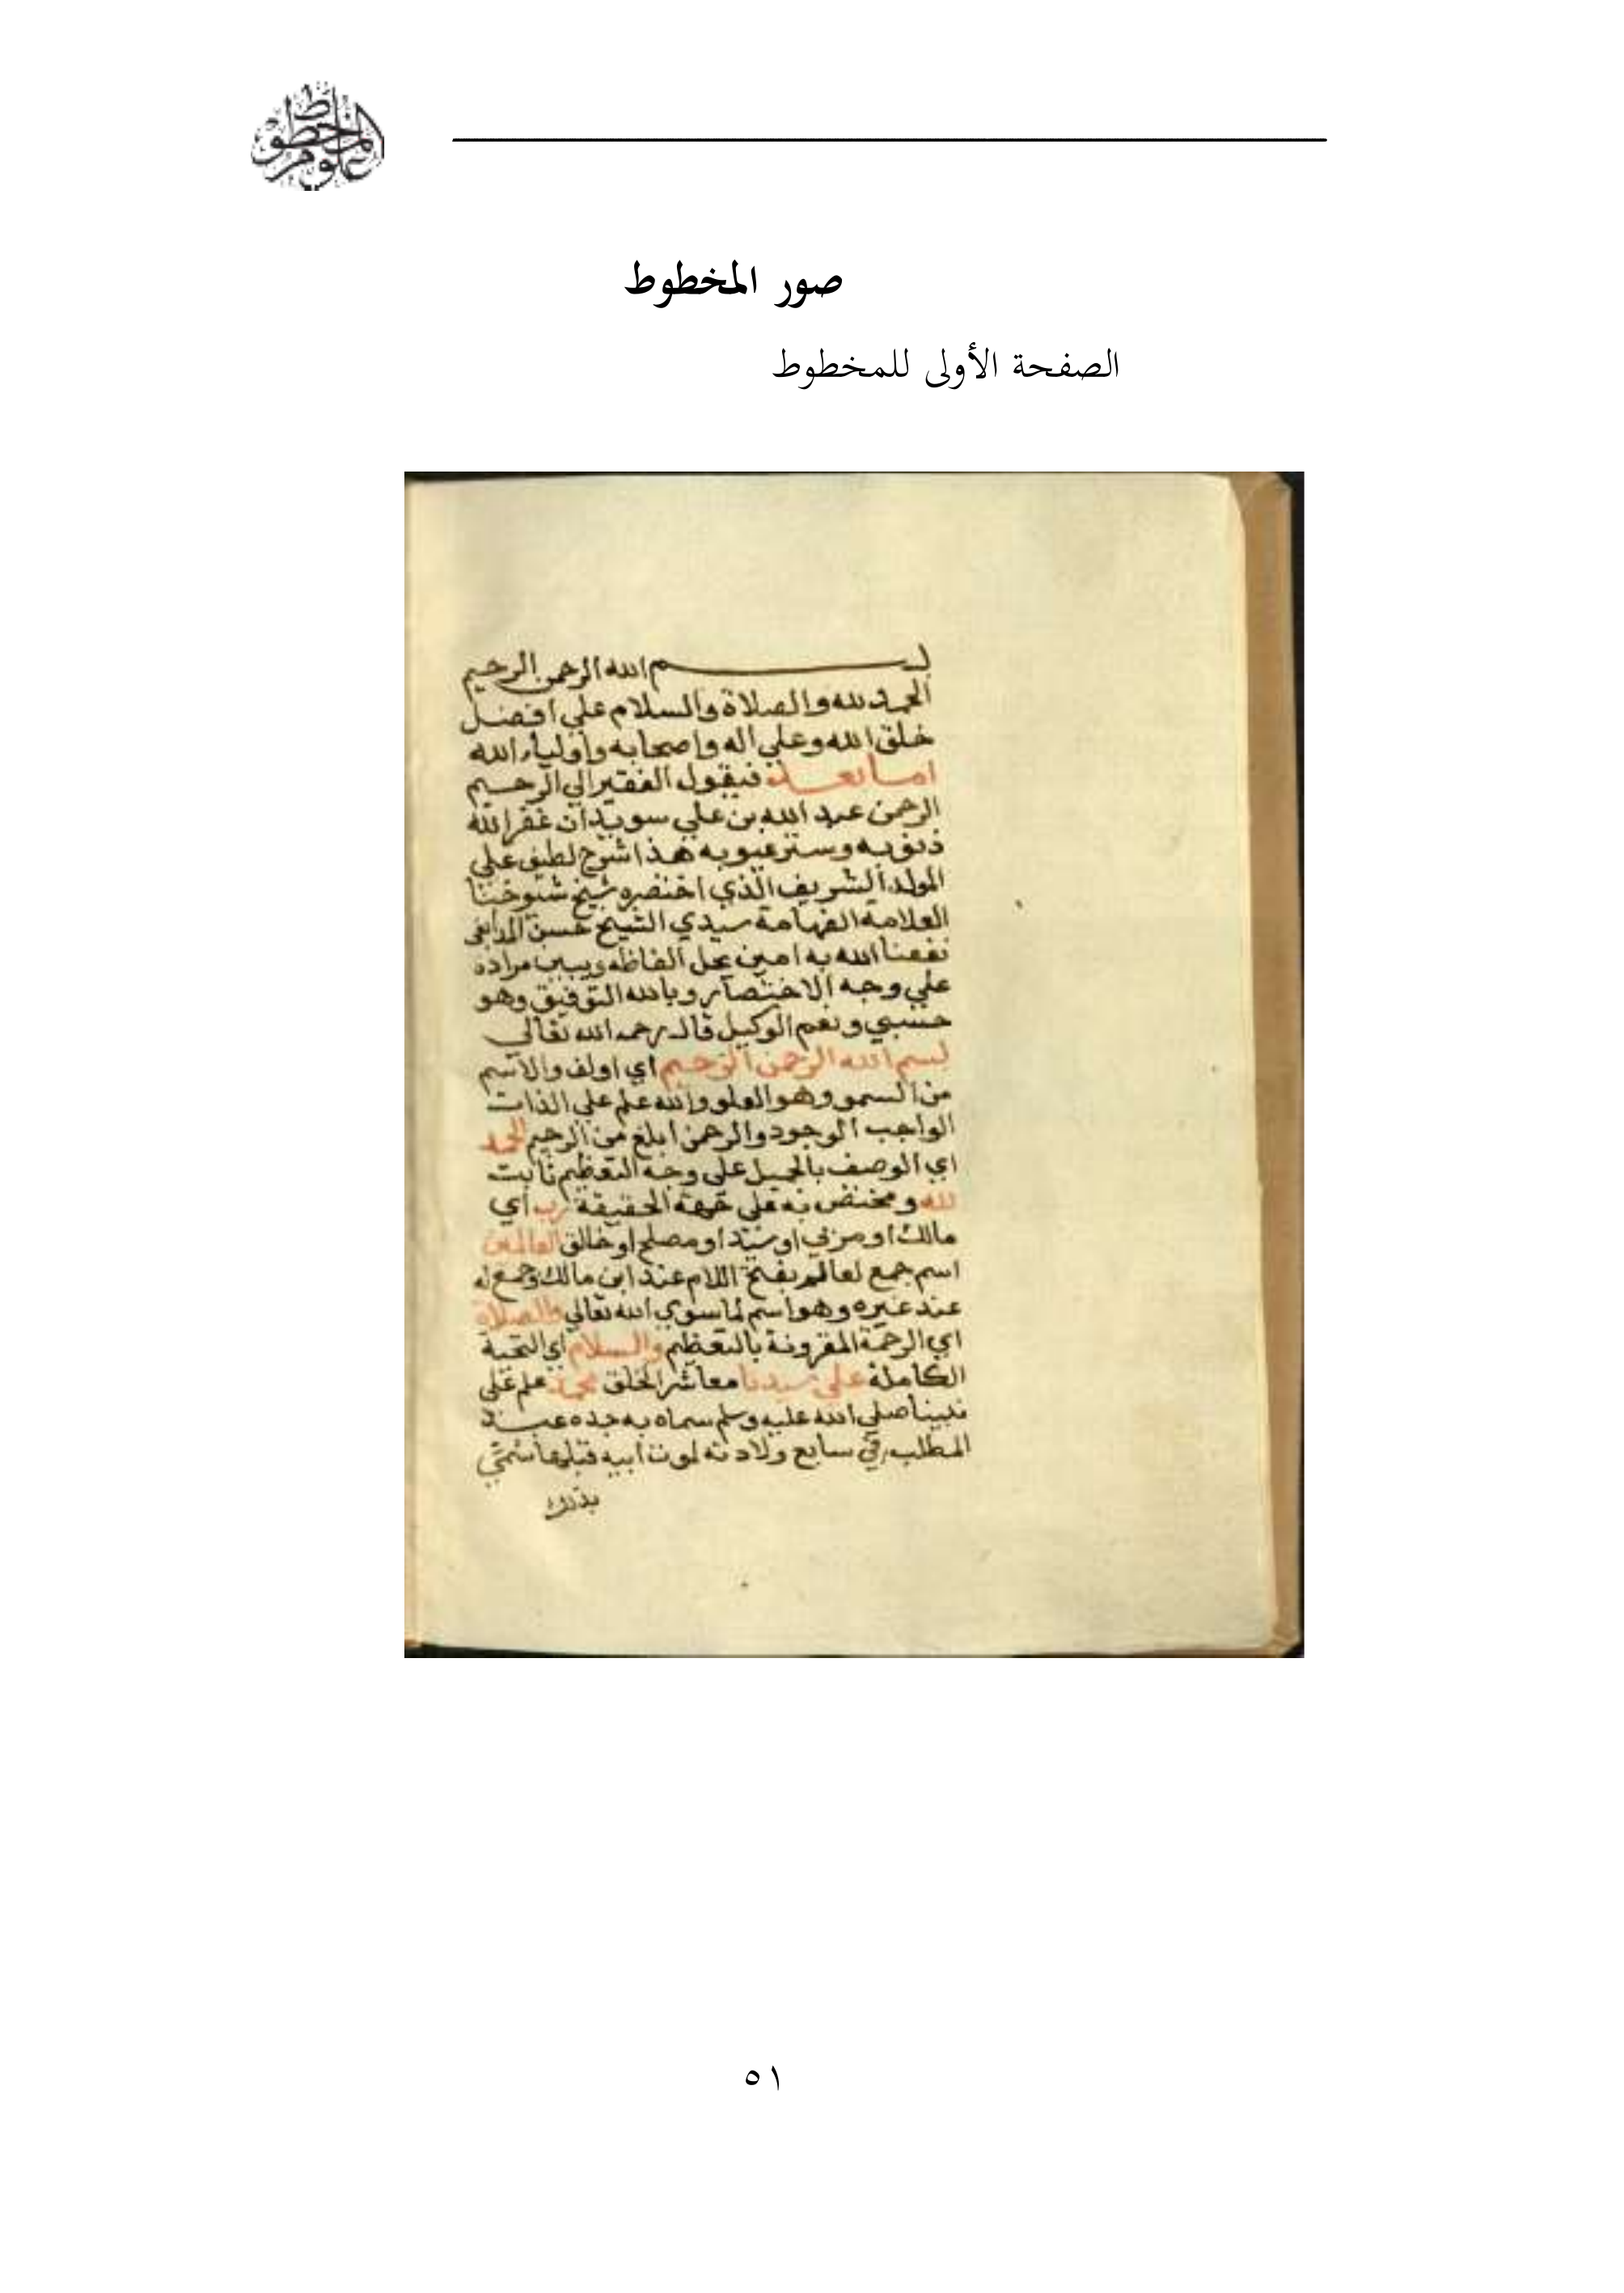 علوم المخطوط
صور المخطوط
الصفحة الأولى للمخطوط
بسم الله الرحمن الرحيم
الحمد لله والصلاة والسلام علي افضل
خلق الله وعلي اله واصحابه واولياء الله
اما بعد فيقول الفقير الي الرحيم
الرحمن عبد الله بن علي سويدان غفر الله
ذنوبه وستر عيوبه هذا شرح لطيف علي
المولد الشريف الذي اختصره شيخ شيوخنا
العلامة الفهامة سيدي الشيخ حسن المدابغي
نفعنا الله به امين يحل الفاظه ويبين مراده
علي وجه الاختصار وبالله التوفيق وهو
حسبي ونعم الوكيل قال رحمه الله تعالي
بسم الله الرحمن الرحيم اي اولف والاسم
من السمو وهو العلو والله علم علي الذات
الواجب الوجود والرحمن ابلغ من الرحيم الحمد
اي الوصف بالجميل علي وجه التعظيم ثابت
لله ومختص به علي جهة الحقيقة رب اي
مالك او مربي او سيد او مصلح او خالق العالمين
اسم جمع لعالم بفتح اللام عند ابن مالك وجمع له
عند غيره وهو اسم لما سوي الله تعالي والصلاة
اي الرحمة المقرونة بالتعظيم والسلام اي التحية
الكاملة علي سيدنا معاشر الخلق محمد علم علي
نبينا صلي الله عليه وسلم سماه به جده عبد
المطلب في سابع ولادته لموت ابيه قبلها
بذلك
٥١